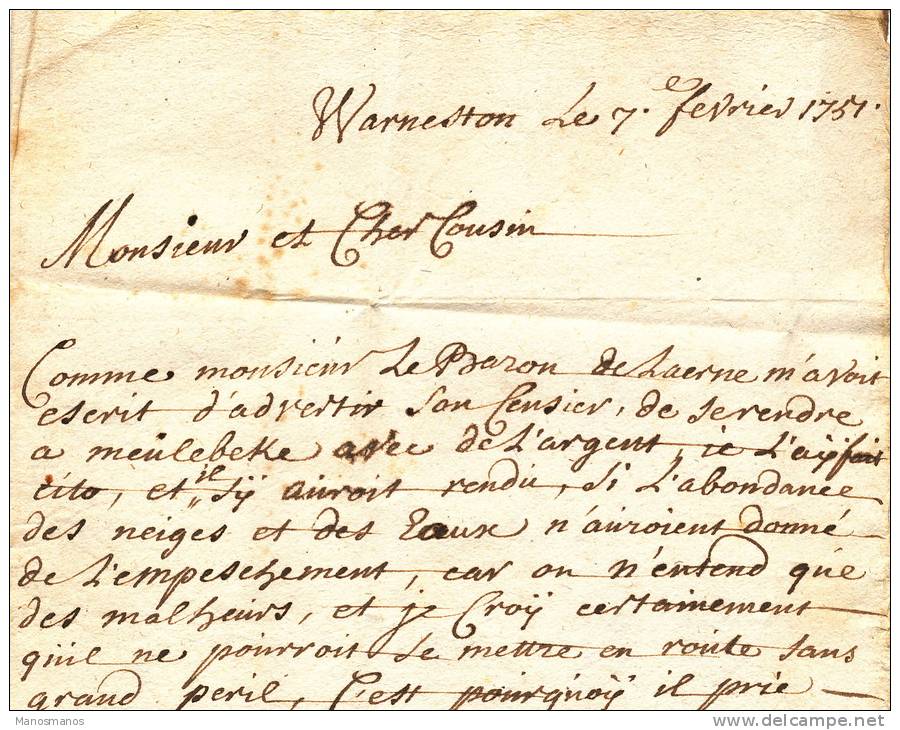 Warneston Le 7.e fevrier 1751.
Monsieur et Cher Cousin
Comme monsiéur Le Baron de Laerne m'avoit
escrit d'advertir Son Censier, de se rendre
a meulebeke avec de L'argent, je L'aÿ fait
cito, et il sÿ auroit rendu, Si L'abondance
des neiges et des Eaux n'auroient donné
de L'empeschement, car on n'entend que
des malheurs, et je Croÿ certainement
qu'il ne pourroit se mettre en route sans
grand peril, C'est pourquoÿ il prie
Manosmanos
www.delcampe.net